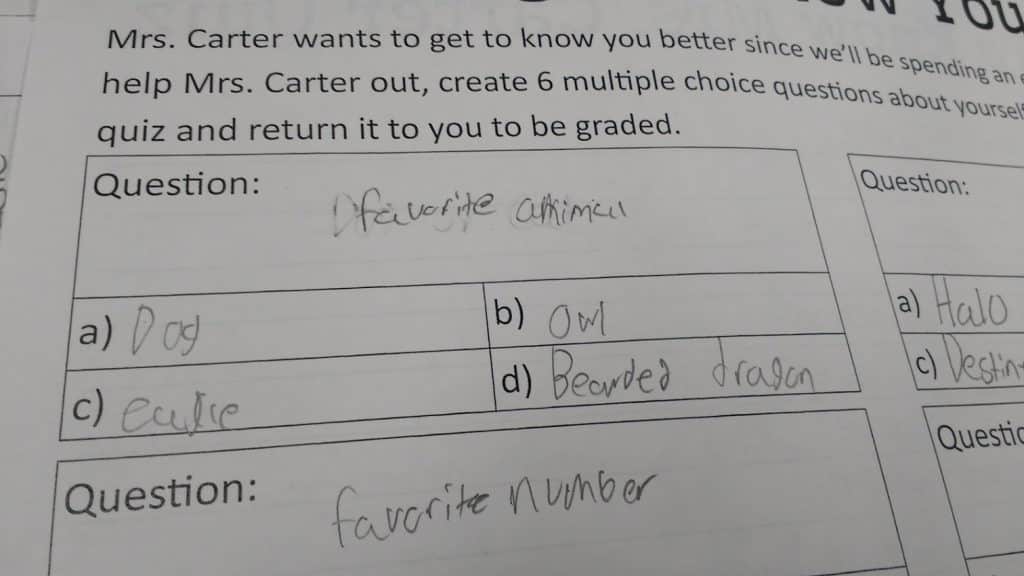 You
Mrs. Carter wants to get to know you better since we'll be spending an
help Mrs. Carter out, create 6 multiple choice questions about yourself
quiz and return it to you to be graded.
Question:
favorite animal
a) Dog
b) Owl
c)
d) Bearded dragon
Question:
a) Halo
c) Destin
Question:
favorite number
Questio